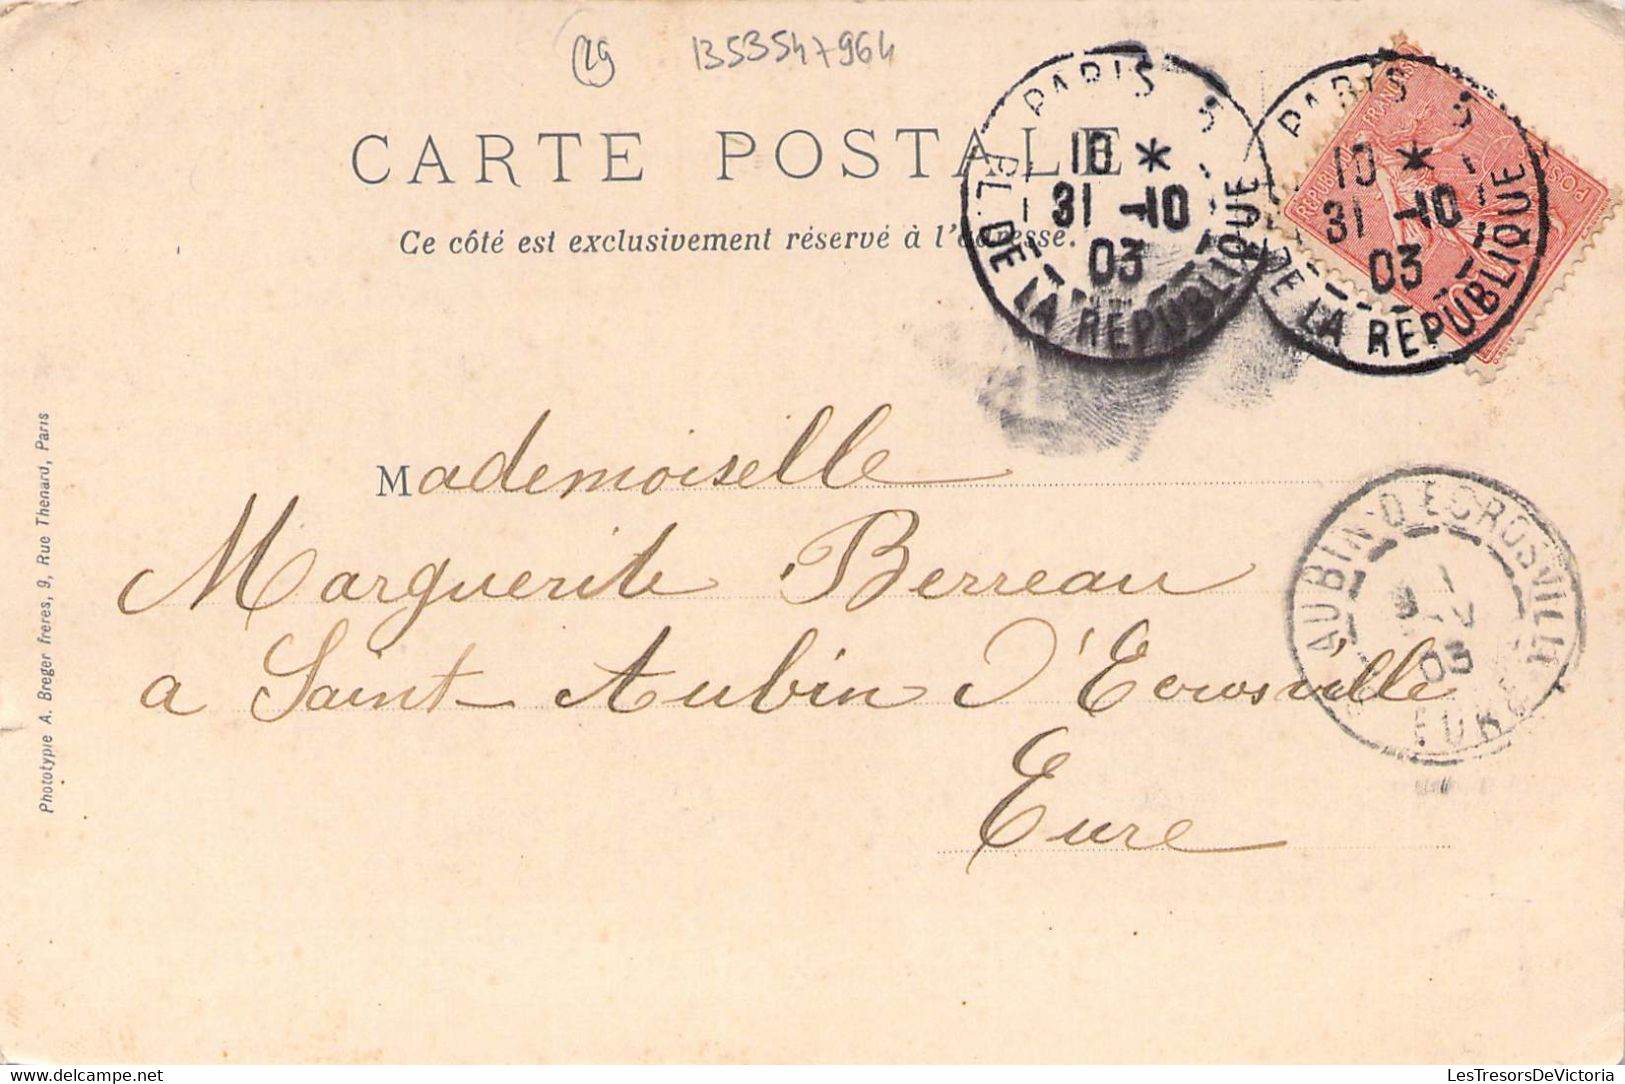 19 1353547964
CARTE POSTALE
Ce côté est exclusivement réservé à l'adresse.
PARIS 5
10 *
31 -10
03
PL. DE LA REPUBLIQUE
PARIS 5
10 *
31 -10
03
DE LA REPUBLIQUE
Mademoiselle
Marguerite Berreau
a Saint Aubin d'Ecrosville
Eure
AUBIN-D'ECROSVILLE
03
EURE
Phototypie A. Breger frères, 9, Rue Thenard, Paris
delcampe.net
LesTresorsDeVictoria